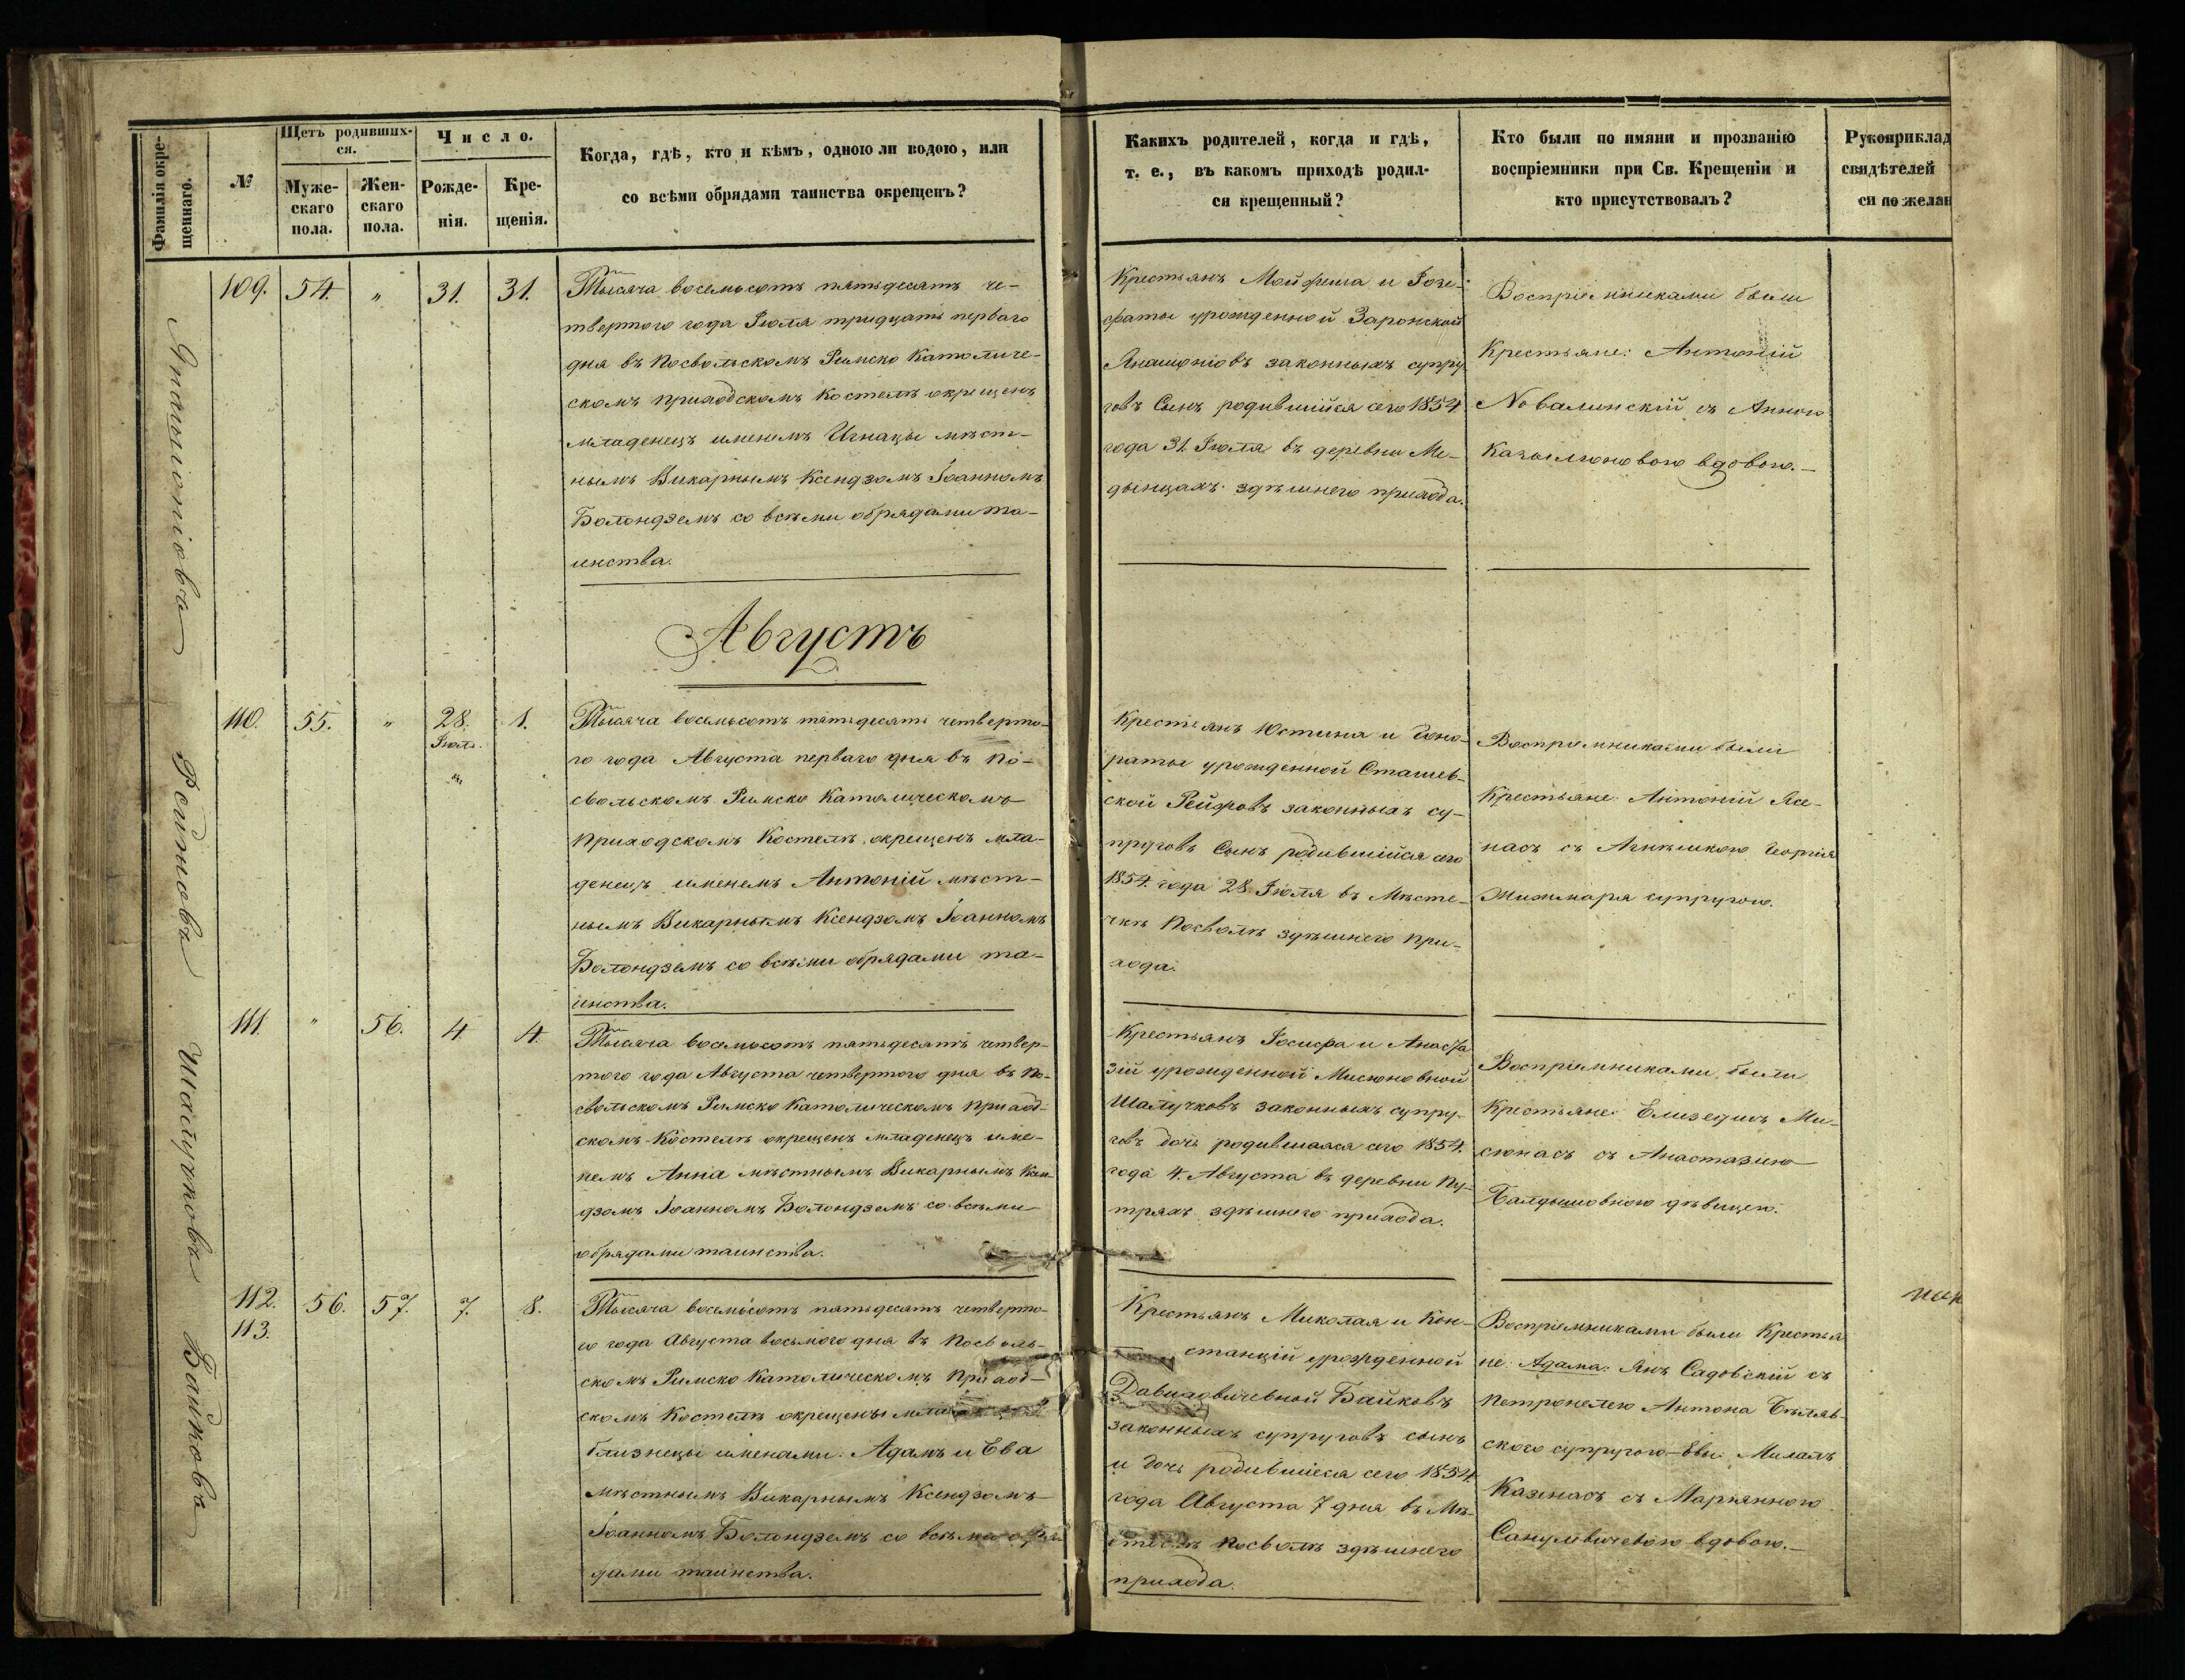 Фамилія окре-
щеннаго.
№
Щетъ родивших-
ся.
Муже-
скаго
пола.
Жен-
скаго
пола.
Число.
Рожде-
нія.
Кре-
щенія.
Когда, гдѣ, кто и кѣмъ, одною ли водою, или
со всѣми обрядами таинства окрещенъ?
Какихъ родителей, когда и гдѣ,
т. е., въ какомъ приходѣ родил-
ся крещенный?
Кто были по имяни и прозванію
воспріемники при Св. Крещеніи и
кто присутствовалъ?
Рукоприклад
свидѣтелей
си по желан
Янашоніовъ
109. 54. „ 31. 31.
Тысяча восемьсотъ пятьдесятъ че-
твертого года Іюля тридцать перваго
дня въ Посвольскомъ Римско Католиче-
скомъ приходскомъ Костелѣ окрещенъ
младенецъ именемъ Игнацы мѣст-
нымъ Викарнымъ Ксендзомъ Іоанномъ
Болондземъ со всѣми обрядами та-
инства.
Крестьянъ Мойфиша и Іозе-
фаты урожденной Заронской
Янашоніовъ законныхъ супру-
говъ Сынъ родившійся сего 1854
года 31 Іюля въ деревни Ме-
дынцахъ здѣшнего прихода.
Воспріемниками были
Крестьяне: Антоній
Новалинскій съ Анною
вдовою.—
Августъ
Рейтовъ
110. 55. „ 28. 1.
Іюля.
„
Тысяча восемьсотъ пятьдесятъ четверто-
го года Августа перваго дня въ По-
свольскомъ Римско Католическомъ
Приходскомъ Костелѣ окрещенъ мла-
денецъ именемъ Антоній мѣст-
нымъ Викарнымъ Ксендзомъ Іоанномъ
Болондземъ со всѣми обрядами та-
инства.
Крестьянъ Юстина и Доно-
раты урожденной Сташев-
ской Рейтовъ законныхъ су-
пруговъ Сынъ родившійся сего
1854. года 28 Іюля въ Мѣсте-
чкѣ Посволѣ здѣшнего при-
хода.
Воспріемниками были
Крестьяне: Антоній Ясе-
насъ съ Агнѣшкою Георгія
Жижмара супругою.
Шалучковъ
111. „ 56. 4. 4.
Тысяча восемьсотъ пятьдесятъ четвер-
того года Августа четвертого дня въ По-
свольскомъ Римско Католическомъ Приход-
скомъ Костелѣ окрещенъ младенецъ име-
немъ Анна мѣстнымъ Викарнымъ Ксен-
дзомъ Іоанномъ Болондземъ со всѣми
обрядами таинства.
Крестьянъ Іосифа и Анаста
зіи урожденной Мисюновной
Шалучковъ законныхъ супру-
говъ дочь родившаяся сего 1854.
года 4. Августа въ деревни Пу-
тряхъ здѣшнего прихода.
Воспріемниками были
Крестьяне: Елизеушъ Ми-
сюнасъ съ Анастазіею
Балдышовною дѣвицею.
Байковъ
112. 56. 57. 7. 8.
113.
Тысяча восемьсотъ пятьдесятъ четверто-
го года Августа восьмого дня въ Посволь-
скомъ Римско Католическомъ Приход-
скомъ Костелѣ окрещены
близнецы именами: Адамъ и Ева
мѣстнымъ Викарнымъ Ксендзомъ
Іоанномъ Болондземъ со всѣми обря
дами таинства.
Крестьянъ Миколая и Кон-
станціи урожденной
Давидовичевной Байковъ
законныхъ супруговъ сынъ
и дочь родившіеся сего 1854
года Августа 7 дня въ Мѣ-
стечкѣ Посволѣ здѣшнего
прихода.
Воспріемниками были Крестья
не: Адама: Янъ Садовскій съ
Петронелею Антона Бѣляв-
ского супругою—Евы: Михалъ
Казенасъ съ Маріянною
вдовою.—